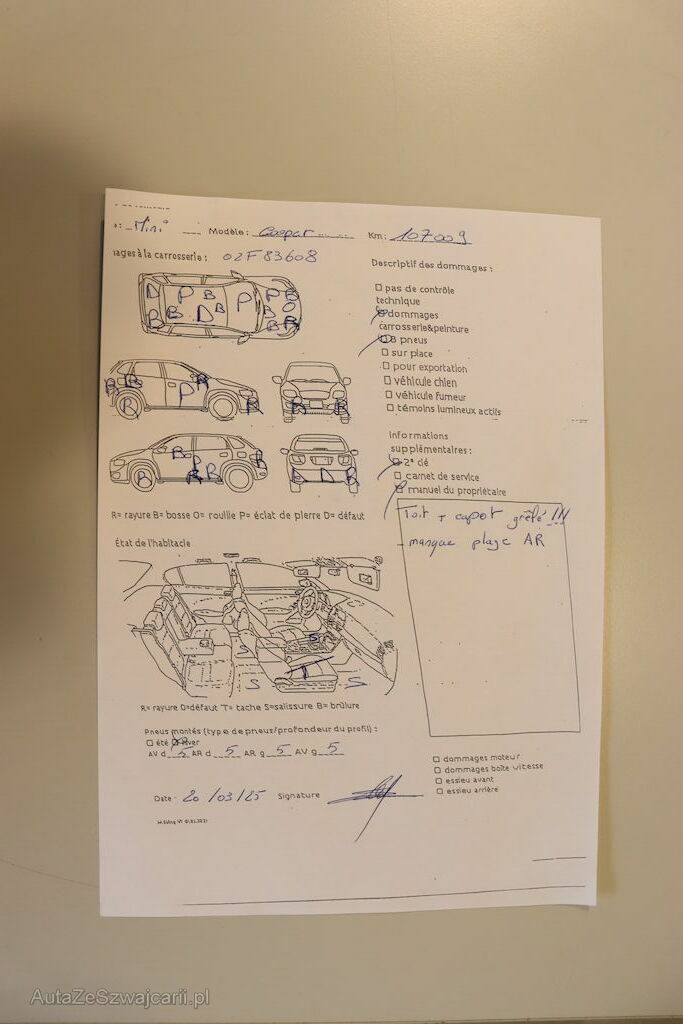 Mini Modèle : Cooper Km : 107009
ages à la carrosserie : 02F83608
Descriptif des dommages :
pas de contrôle
technique
dommages
carrosserie&peinture
pneus
sur place
pour exportation
véhicule chien
véhicule fumeur
témoins lumineux actifs
Informations
supplémentaires :
2ᵉ clé
carnet de service
manuel du propriétaire
R= rayure B= bosse O= rouille P= éclat de pierre D= défaut
Toit + capot grêlé !!!
- manque plage AR
État de l'habitacle
R= rayure D=défaut T= tache S=salissure B= brûlure
Pneus montés (type de pneus/profondeur du profil) :
été hiver
AV d 5 AR d 5 AR g 5 AV g 5
dommages moteur
dommages boîte vitesse
essieu avant
essieu arrière
Date : 20/03/25 Signature
AutaZeSzwajcarii.pl